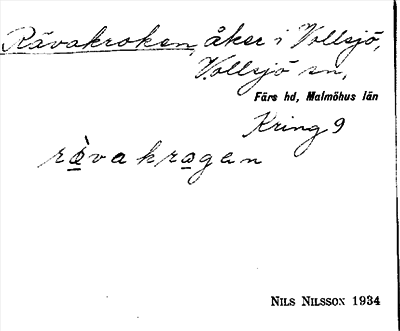 Rävakroken, åker i Vollsjö,
Vollsjö sn,
Färs hd, Malmöhus län
Kring 9
rä̀vakrogen
NILS NILSSON 1934